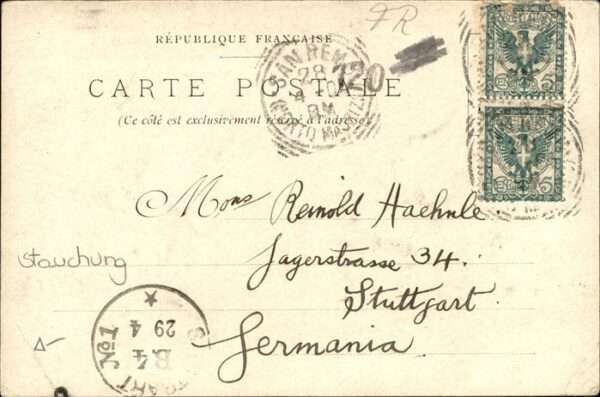 FR
RÉPUBLIQUE FRANÇAISE
CARTE POSTALE
(Ce côté est exclusivement réservé à l'adresse)
SAN REMO
28
4
8M
(PORTO MAURIZIO)
Mons Reinold Haehnle
Jagerstrasse 34.
Stuttgart.
Germania
Stauchung
No1
B4
29 4
5
5